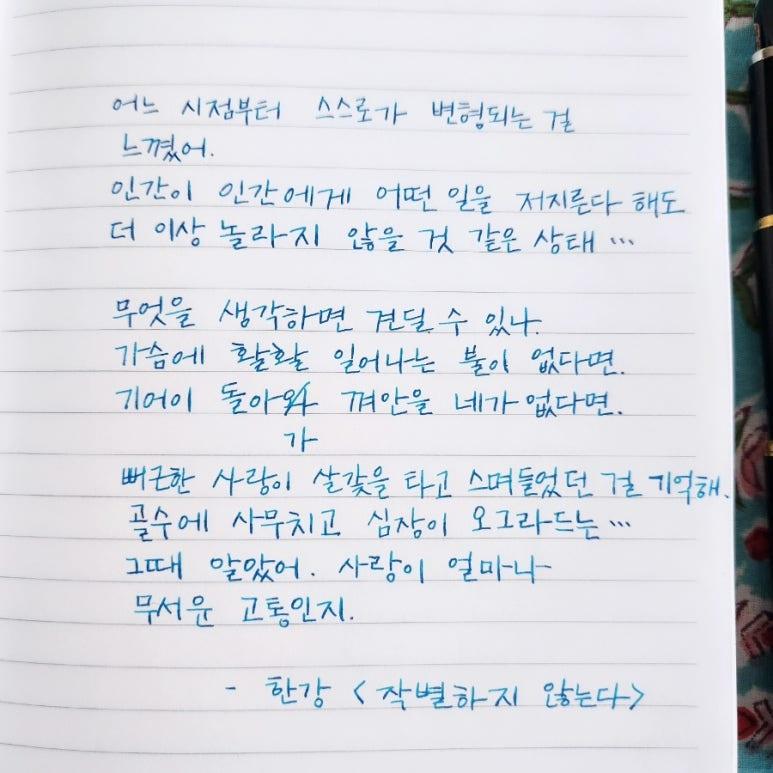 어느 시점부터 스스로가 변형되는 걸
느꼈어.
인간이 인간에게 어떤 일을 저지른다 해도
더 이상 놀라지 않을 것 같은 상태…
무엇을 생각하면 견딜 수 있나.
가슴에 활활 일어나는 불이 없다면.
기어이 돌아와 껴안을 네가 없다면.
가
뻐근한 사랑이 살갗을 타고 스며들었던 걸 기억해.
골수에 사무치고 심장이 오그라드는…
그때 알았어. 사랑이 얼마나
무서운 고통인지.
- 한강 <작별하지 않는다>